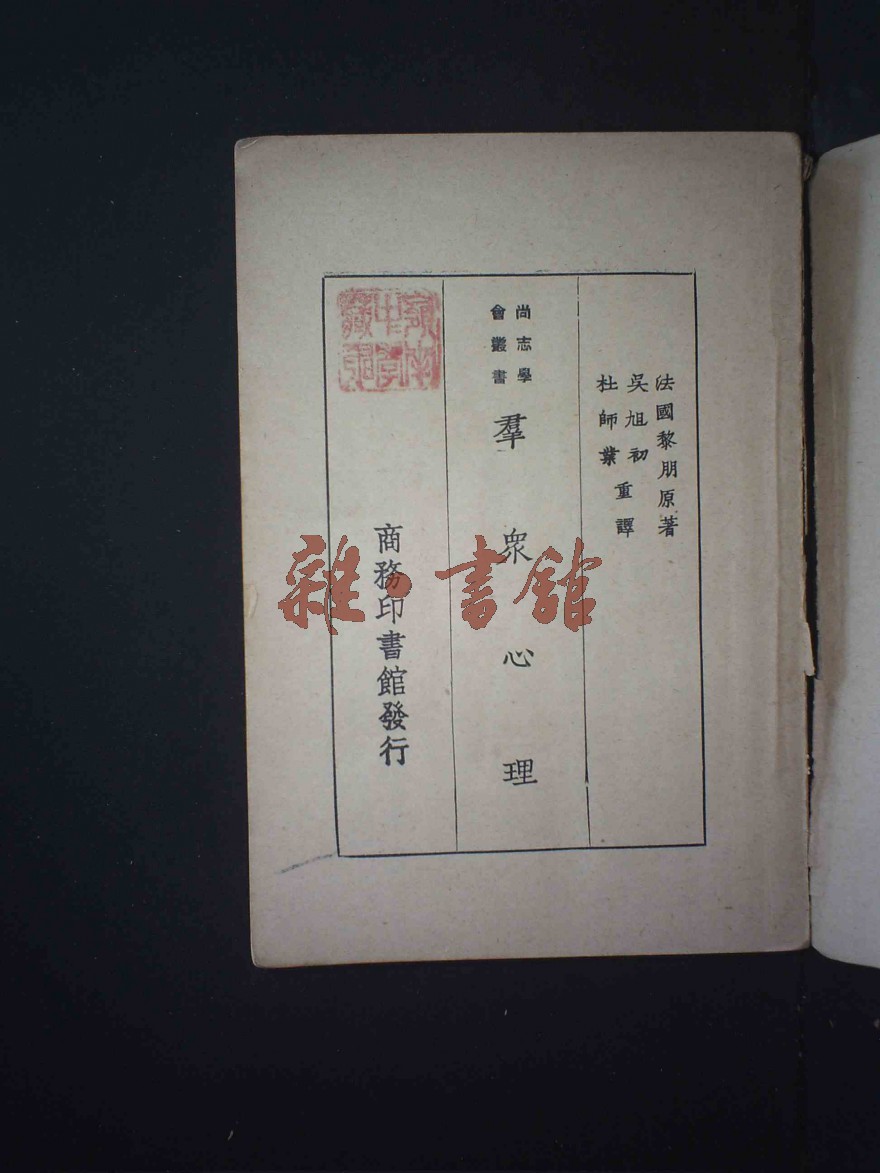 法國黎朋原著
吳旭初
杜師業
重譯
尚志學
會叢書
羣衆心理
商務印書館發行
雜·書館